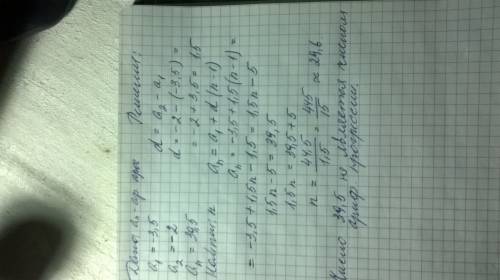 Дано: aₙ-ар. прог
a₁ = -3,5
a₂ = -2
aₙ = 39,5
Найти: n
Решение:
d = a₂ - a₁
d = -2 - (-3,5) =
= -2 + 3,5 = 1,5
aₙ = a₁ + d(n-1)
aₙ = -3,5 + 1,5(n-1) =
= -3,5 + 1,5n - 1,5 = 1,5n - 5
1,5n - 5 = 39,5
1,5n = 39,5 + 5
n = 44,5/1,5 = 445/15 ≈ 29,6
число 39,5 не является членом
ариф. прогрессии.